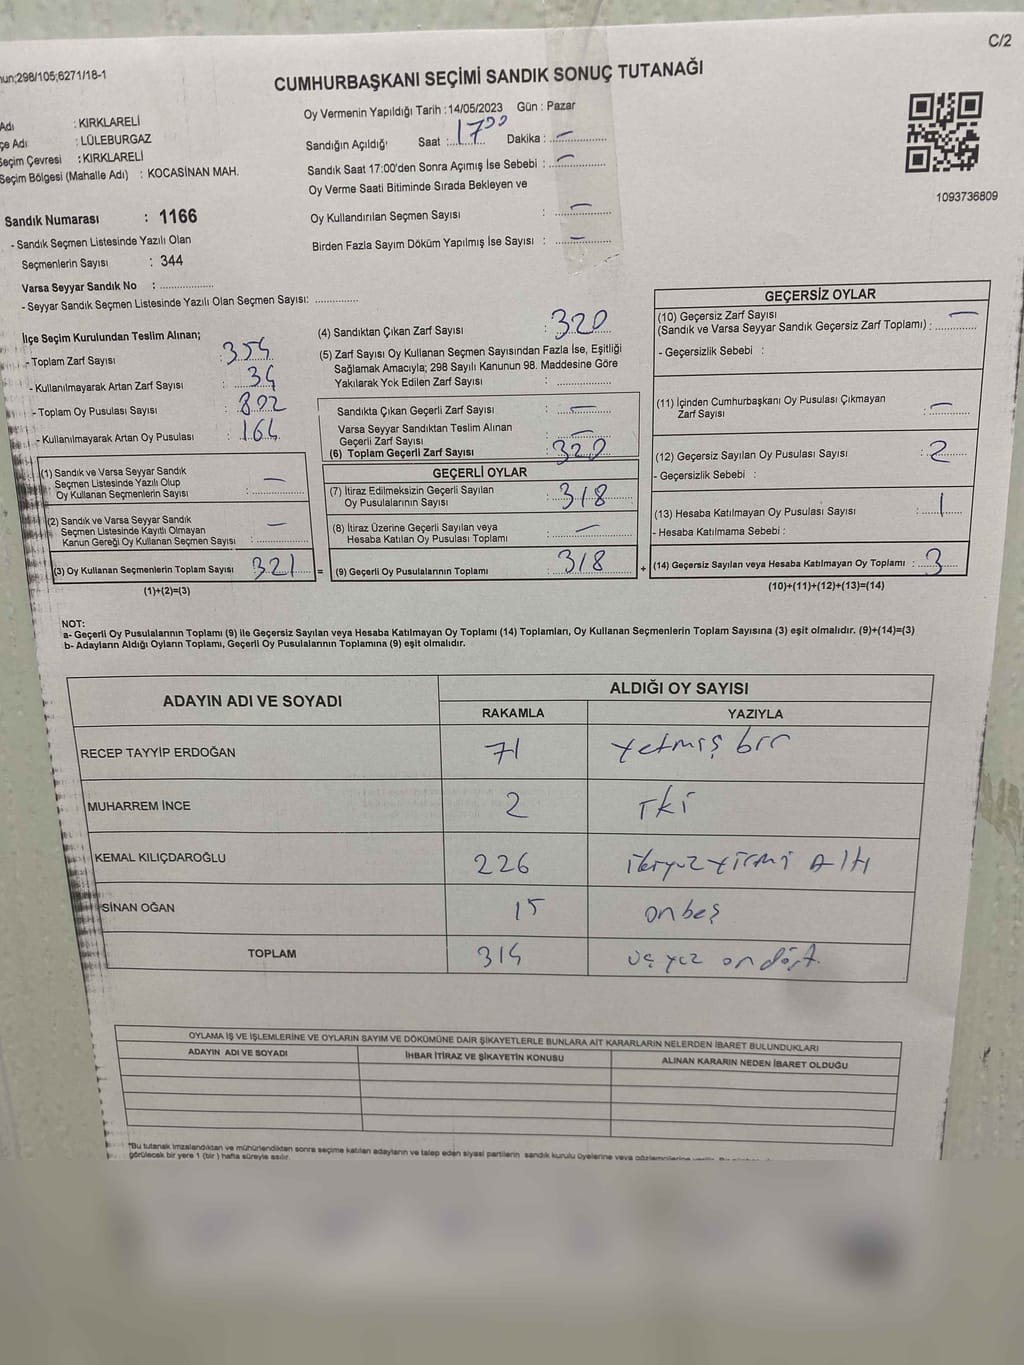 C/2
nun;298/105;6271/18-1
CUMHURBAŞKANI SEÇİMİ SANDIK SONUÇ TUTANAĞI
Adı : KIRKLARELİ
çe Adı : LÜLEBURGAZ
Seçim Çevresi : KIRKLARELİ
Seçim Bölgesi (Mahalle Adı) : KOCASİNAN MAH.
Sandık Numarası : 1166
- Sandık Seçmen Listesinde Yazılı Olan
Seçmenlerin Sayısı : 344
Varsa Seyyar Sandık No : ..................
- Seyyar Sandık Seçmen Listesinde Yazılı Olan Seçmen Sayısı: ..............
Oy Vermenin Yapıldığı Tarih : 14/05/2023 Gün : Pazar
Sandığın Açıldığı Saat : 17 00 Dakika : —
Sandık Saat 17:00'den Sonra Açımış İse Sebebi : —
Oy Verme Saati Bitiminde Sırada Bekleyen ve
Oy Kullandırılan Seçmen Sayısı : —
Birden Fazla Sayım Döküm Yapılmış İse Sayısı : —
1093736809
İlçe Seçim Kurulundan Teslim Alınan;
- Toplam Zarf Sayısı : 354
- Kullanılmayarak Artan Zarf Sayısı : 34
- Toplam Oy Pusulası Sayısı : 802
- Kullanılmayarak Artan Oy Pusulası : 164
(1) Sandık ve Varsa Seyyar Sandık
Seçmen Listesinde Yazılı Olup
Oy Kullanan Seçmenlerin Sayısı : —
(2) Sandık ve Varsa Seyyar Sandık
Seçmen Listesinde Kayıtlı Olmayan
Kanun Gereği Oy Kullanan Seçmen Sayısı : —
(3) Oy Kullanan Seçmenlerin Toplam Sayısı 321 =
(1)+(2)=(3)
(4) Sandıktan Çıkan Zarf Sayısı : 320
(5) Zarf Sayısı Oy Kullanan Seçmen Sayısından Fazla İse, Eşitliği
Sağlamak Amacıyla; 298 Sayılı Kanunun 98. Maddesine Göre
Yakılarak Yok Edilen Zarf Sayısı : ..................
Sandıkta Çıkan Geçerli Zarf Sayısı : —
Varsa Seyyar Sandıktan Teslim Alınan
Geçerli Zarf Sayısı : —
(6) Toplam Geçerli Zarf Sayısı : 320
GEÇERLİ OYLAR
(7) İtiraz Edilmeksizin Geçerli Sayılan
Oy Pusulalarının Sayısı : 318
(8) İtiraz Üzerine Geçerli Sayılan veya
Hesaba Katılan Oy Pusulası Toplamı : —
(9) Geçerli Oy Pusulalarının Toplamı : 318 +
GEÇERSİZ OYLAR
(10) Geçersiz Zarf Sayısı
(Sandık ve Varsa Seyyar Sandık Geçersiz Zarf Toplamı) : —
- Geçersizlik Sebebi :
(11) İçinden Cumhurbaşkanı Oy Pusulası Çıkmayan
Zarf Sayısı : —
(12) Geçersiz Sayılan Oy Pusulası Sayısı : 2
- Geçersizlik Sebebi :
(13) Hesaba Katılmayan Oy Pusulası Sayısı : 1
- Hesaba Katılmama Sebebi :
(14) Geçersiz Sayılan veya Hesaba Katılmayan Oy Toplamı : 3
(10)+(11)+(12)+(13)=(14)
NOT:
a- Geçerli Oy Pusulalarının Toplamı (9) ile Geçersiz Sayılan veya Hesaba Katılmayan Oy Toplamı (14) Toplamları, Oy Kullanan Seçmenlerin Toplam Sayısına (3) eşit olmalıdır. (9)+(14)=(3)
b- Adayların Aldığı Oyların Toplamı, Geçerli Oy Pusulalarının Toplamına (9) eşit olmalıdır.
ADAYIN ADI VE SOYADI
ALDIĞI OY SAYISI
RAKAMLA YAZIYLA
RECEP TAYYİP ERDOĞAN 71 Yetmiş bir
MUHARREM İNCE 2 iki
KEMAL KILIÇDAROĞLU 226 ikiyüz yirmi Altı
SİNAN OĞAN 15 onbeş
TOPLAM 314 üç yüz on dört.
OYLAMA İŞ VE İŞLEMLERİNE VE OYLARIN SAYIM VE DÖKÜMÜNE DAİR ŞİKAYETLERLE BUNLARA AİT KARARLARIN NELERDEN İBARET BULUNDUKLARI
ADAYIN ADI VE SOYADI İHBAR İTİRAZ VE ŞİKAYETİN KONUSU ALINAN KARARIN NEDEN İBARET OLDUĞU
"Bu tutanak imzalandıktan ve mühürlendikten sonra seçime katılan adayların ve talep eden siyasi partilerin sandık kurulu üyelerine veya gözlemcilerine
görülecek bir yere 1 (bir) hafta süreyle asılır.